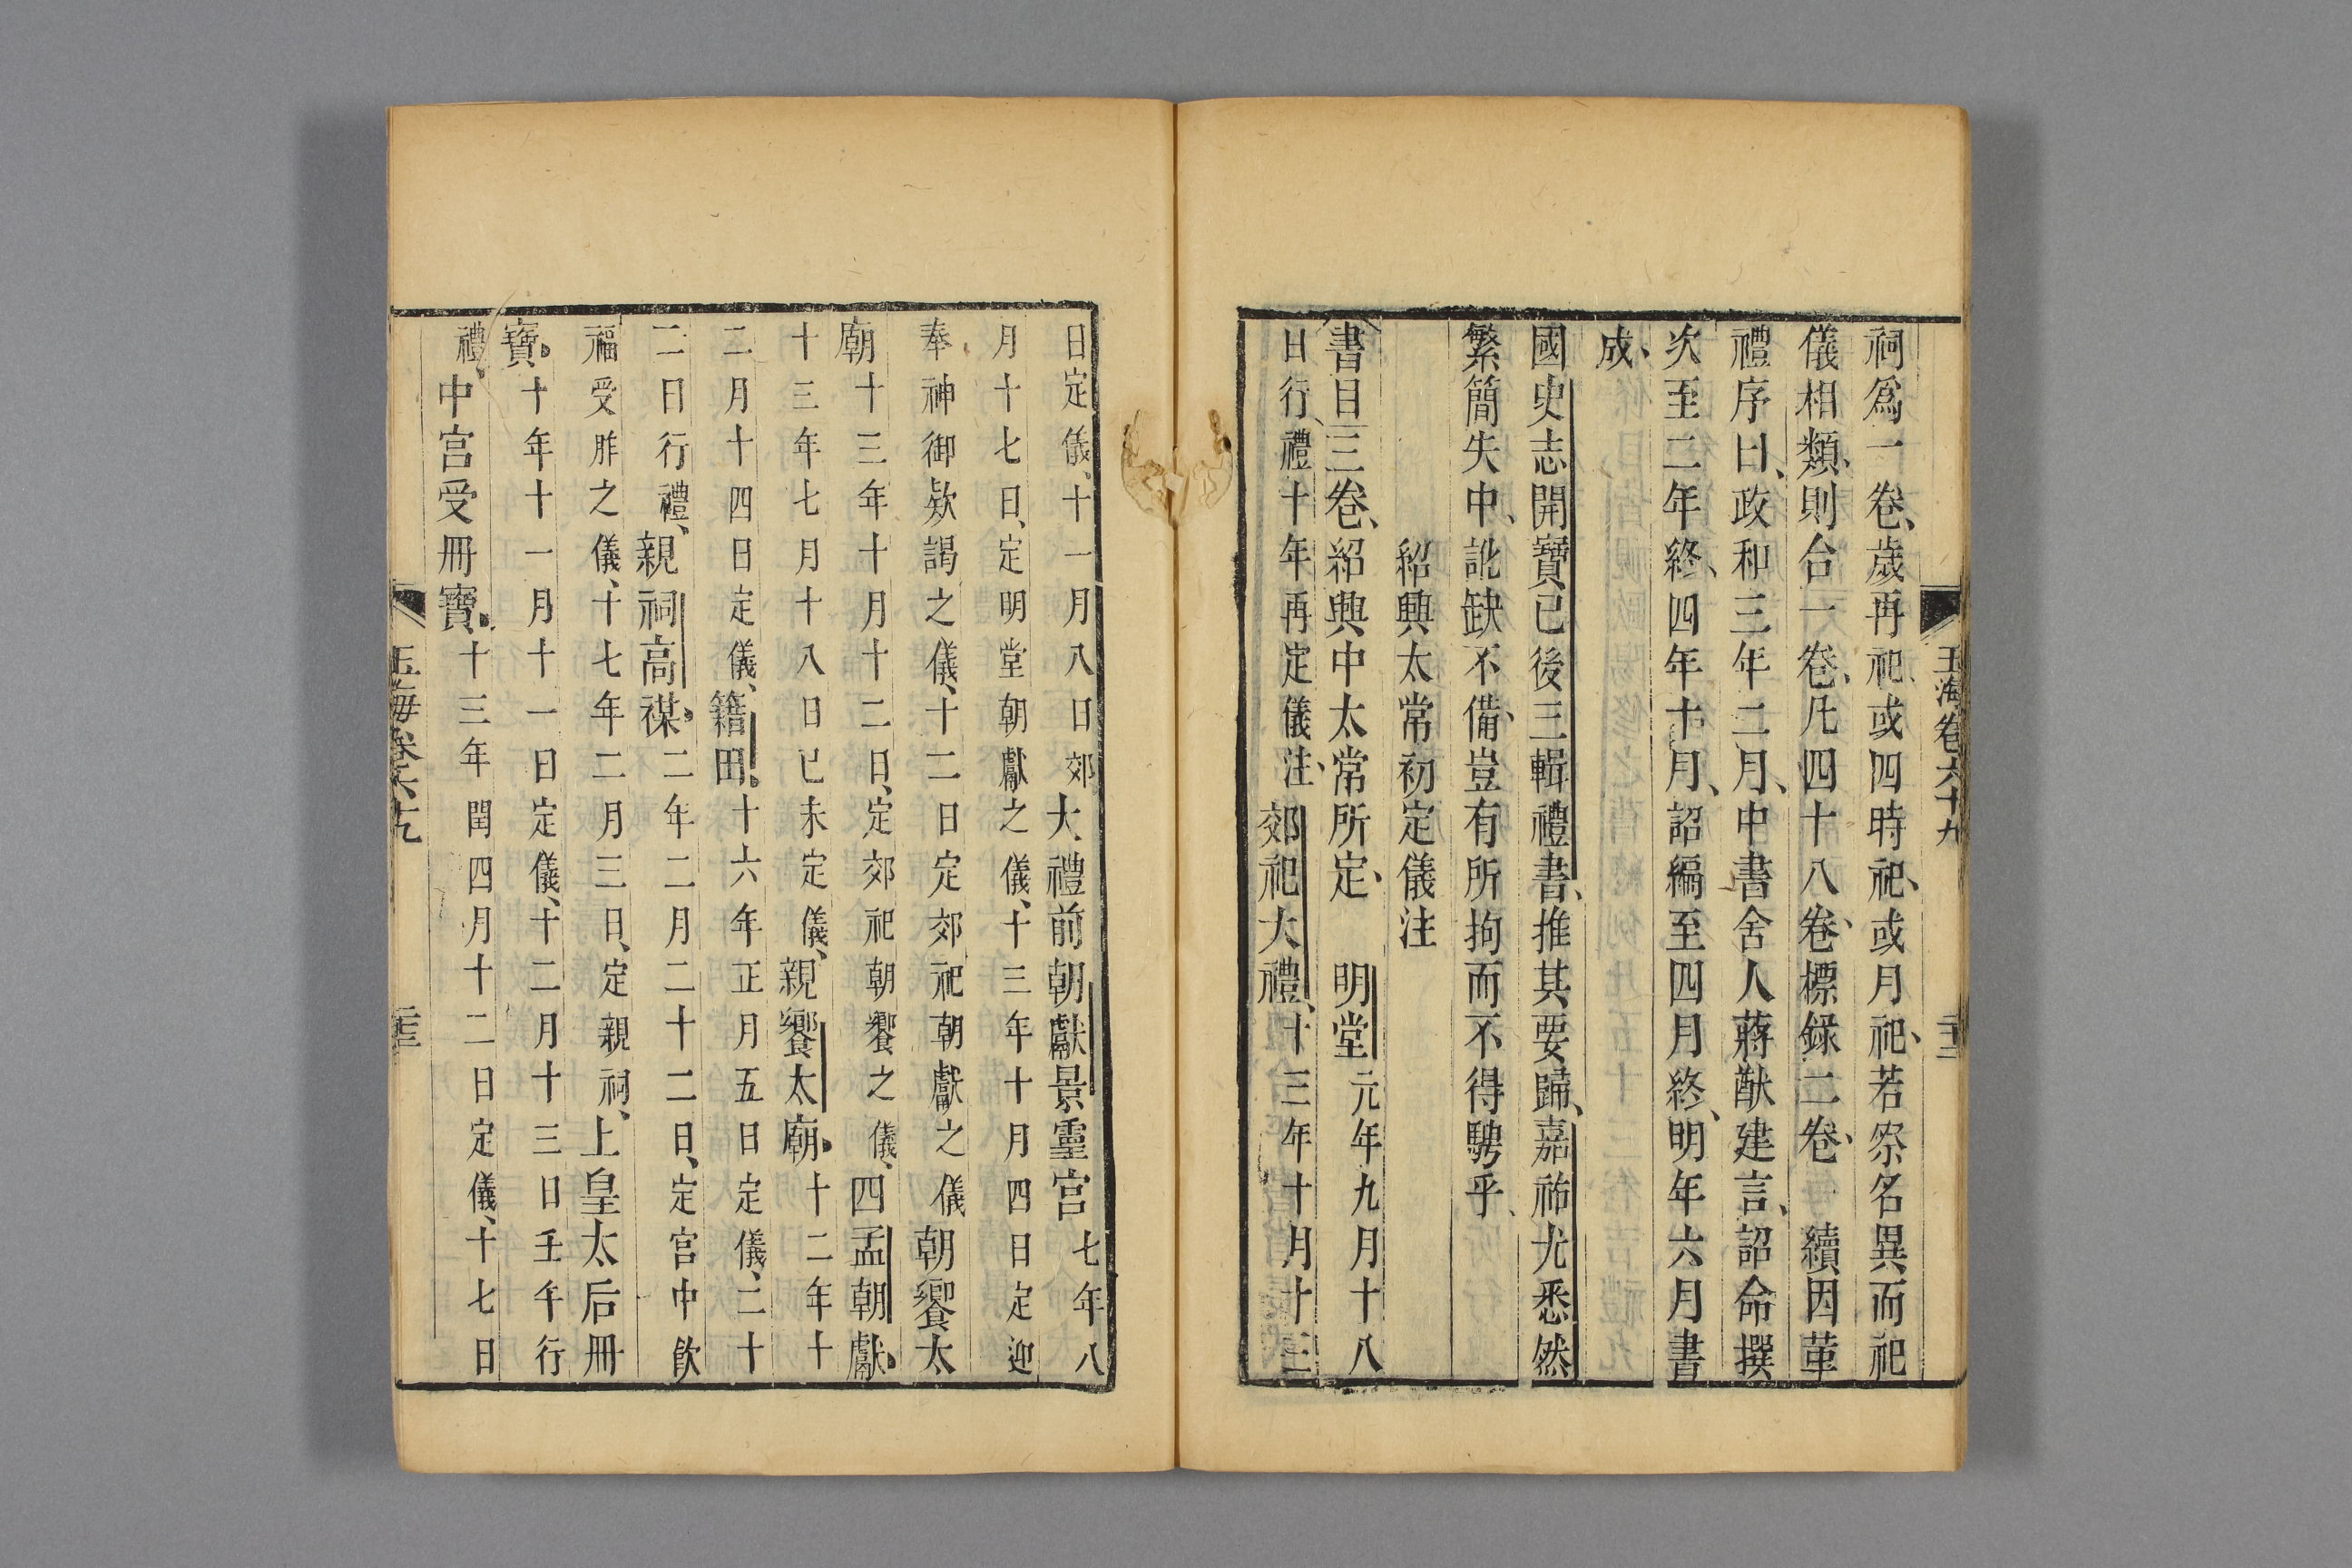 玉海卷六十九
祠爲一卷、歲再祀、或四時祀、或月祀、若宗名異而祀
儀相類、則合一卷、凡四十八卷、標録二卷、續因革
禮序曰、政和三年二月、中書舍人蔣猷建言、詔命撰
次至二年終、四年十月、詔編至四月終、明年六月書
成、
國史志開寶已後三輯禮書、推其要歸、嘉祐尤悉然
繁簡失中、訛缺不備、豈有所拘而不得騁乎、
紹興太常初定儀注
書目三卷、紹興中太常所定、明堂元年九月十八
日行禮十年再定儀注、郊祀大禮、十三年十月十三
日定儀、十一月八日郊大禮前朝獻景靈宮七年八
月十七日、定明堂朝獻之儀、十三年十月四日定迎
奉神御欵謁之儀、十二日定郊祀朝獻之儀朝饗太
廟十三年十月十二日、定郊祀朝饗之儀、四孟朝獻、
十三年七月十八日已未定儀、親饗太廟、十二年十
二月十四日定儀、籍田、十六年正月五日定儀、二十
二日行禮、親祠高禖、二年二月二十二日、定宮中飲
福受胙之儀、十七年二月三日、定親祠、上皇太后冊
寶、十年十一月十一日定儀、十二月十三日壬午行
禮、中宮受冊寶、十三年閏四月十二日定儀、十七日
玉海卷六十九